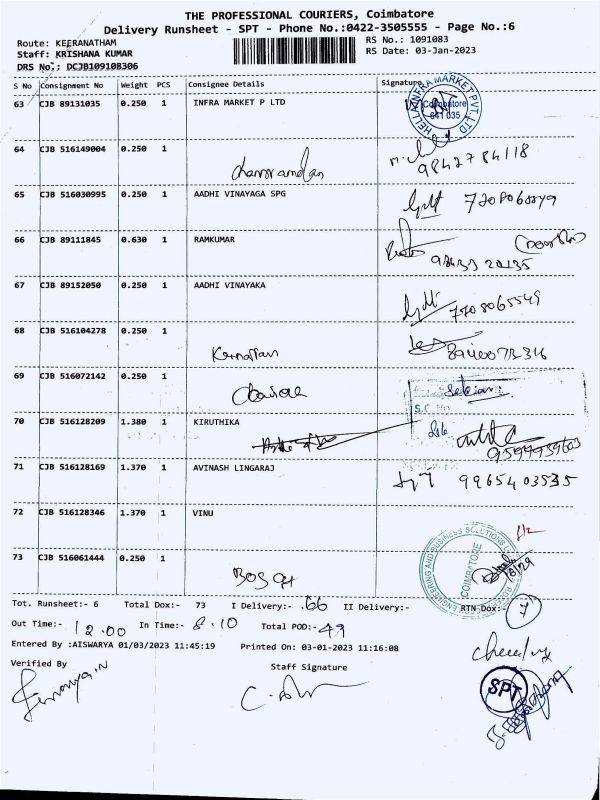 THE PROFESSIONAL COURIERS, Coimbatore
Delivery Runsheet - SPT - Phone No.:0422-3505555 - Page No.:6
Route: KEERANATHAM
RS No.: 1091083
Staff: KRISHANA KUMAR
RS Date: 03-Jan-2023
DRS No.: DCJB109108306
S No Consignment No Weight PCS Consignee Details Signature
63 CJB 89131035 0.250 1 INFRA MARKET P LTD
HELLA INFRA MARKET PVT. LTD
Coimbatore
641 035
64 CJB 516149004 0.250 1
9842784118
65 CJB 516030995 0.250 1 AADHI VINAYAGA SPG
66 CJB 89111845 0.630 1 RAMKUMAR
67 CJB 89152050 0.250 1 AADHI VINAYAKA
7708065549
68 CJB 516104278 0.250 1
69 CJB 516072142 0.250 1
S.C. No
70 CJB 516128209 1.380 1 KIRUTHIKA
71 CJB 516128169 1.370 1 AVINASH LINGARAJ
9965403535
72 CJB 516128346 1.370 1 VINU
ENGINEERING AND BUSINESS SOLUTIONS
COIMBATORE
73 CJB 516061444 0.250 1
BOSCH
Tot. Runsheet:- 6 Total Dox:- 73 I Delivery:- 66 II Delivery:- RTN Dox:- 7
Out Time:- 12.00 In Time:- 8.10 Total POD:- 49
Entered By :AISWARYA 01/03/2023 11:45:19 Printed On: 03-01-2023 11:16:08
Verified By Staff Signature
SPT